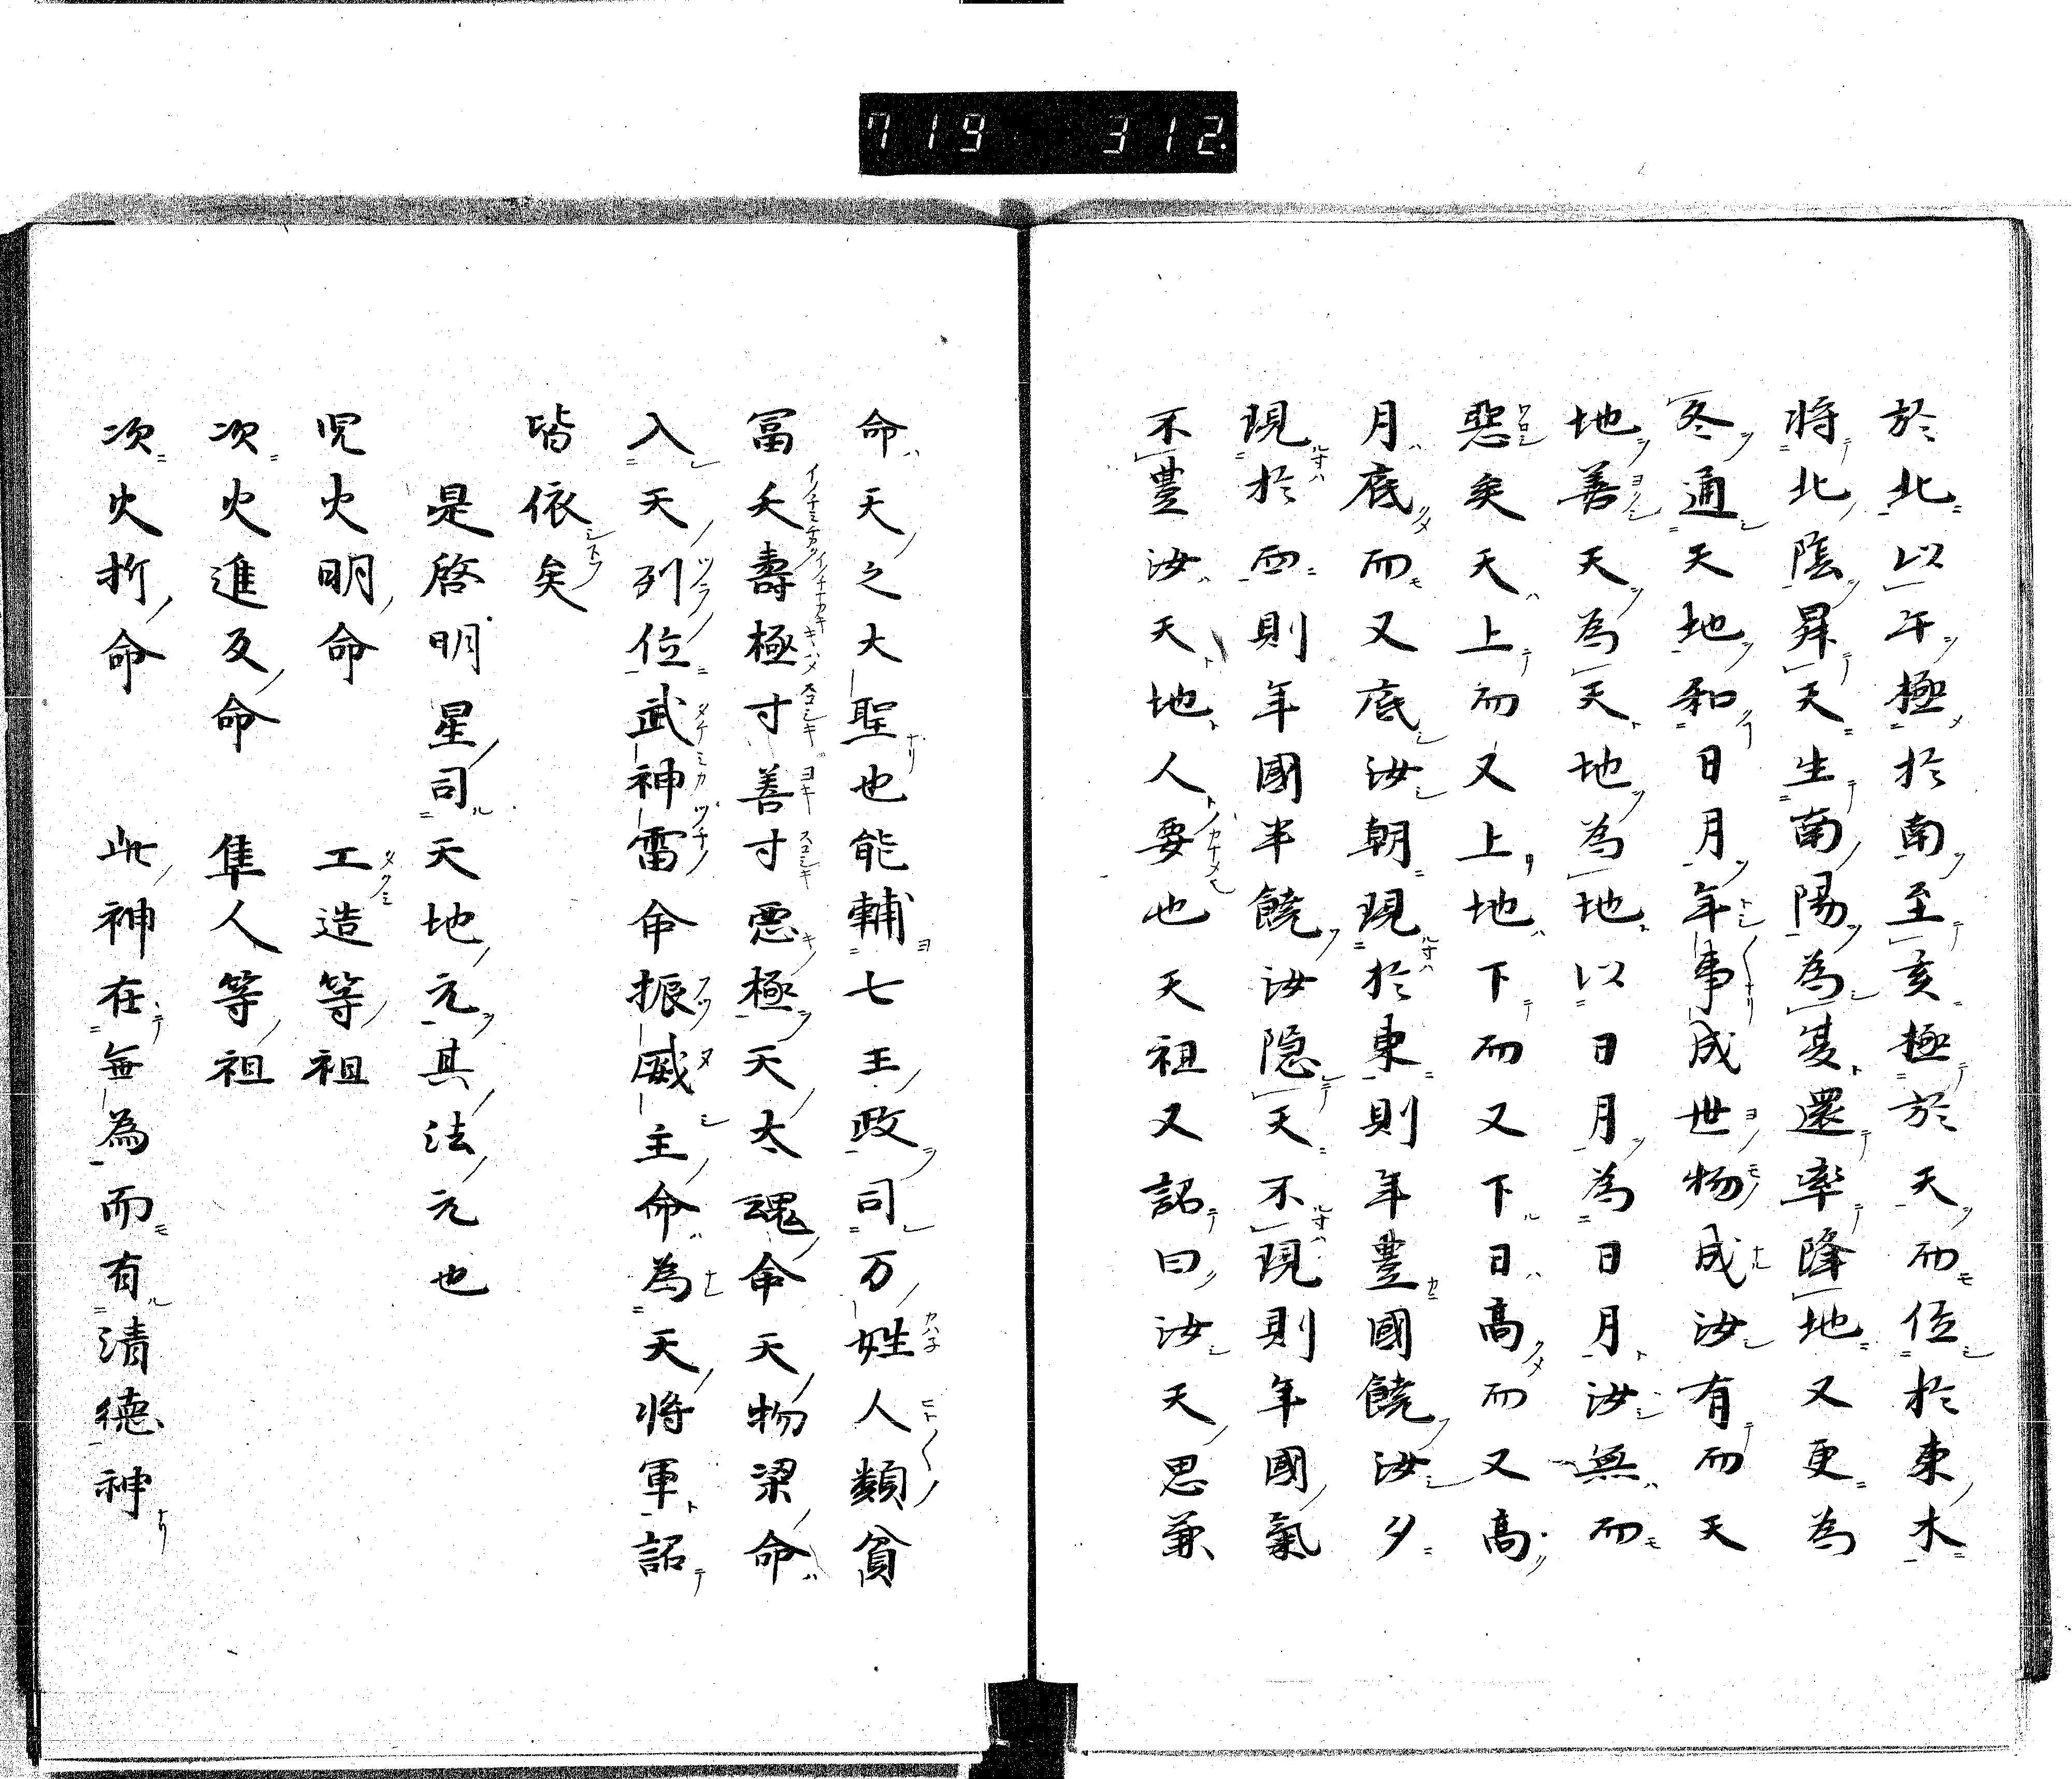 719 312.
於北以午極於南至亥極於天而位於東木
将北陰昇天生南陽為夏還率降地又更為
冬通天地和日月年事成世物成汝有而天
地善天為天地為地以日月為日月汝無而
惡矣天上而又上地下而又下日高而又高
月底而又底汝朝現於東則年豊國饒汝夕
現於西則年國半饒汝隠天不現則年國氣
不豊汝天地人要也天祖又詔曰汝天思兼
命天之大聖也能輔七王政司万姓人類貧
冨夭壽極寸善寸悪極天太魂命天物梁命
入天列位武神雷命振威主命為天将軍詔
皆依矣
是啓明星司天地元其法元也
児火明命 工造等祖
次火進及命 隼人等祖
次火折命 此神在無為而有清徳神